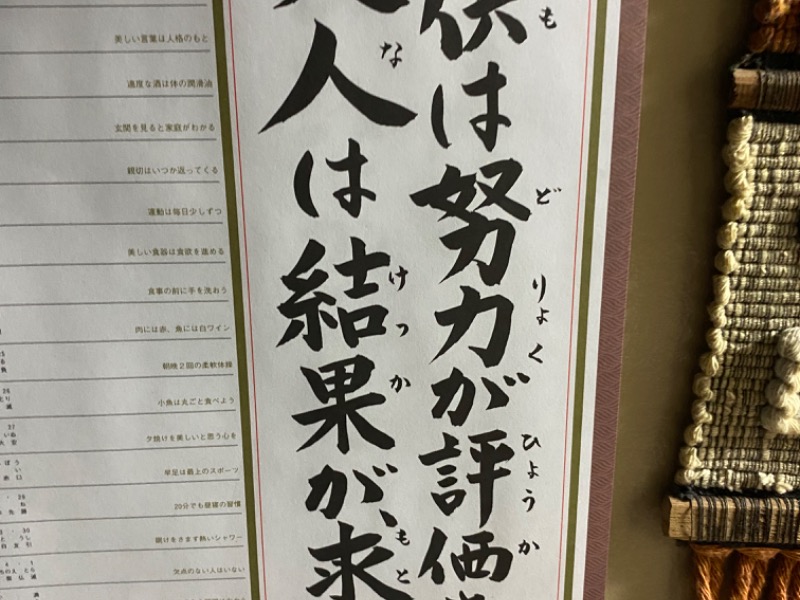 供は努力が評価
も
ど
りょく
ひょうか
人は結果が、求
な
けっか
もと
美しい言葉は人格のもと
適度な酒は体の潤滑油
玄関を見ると家庭がわかる
親切はいつか返ってくる
運動は毎日少しずつ
美しい食器は食欲を進める
食事の前に手を洗おう
肉には赤、魚には白ワイン
朝晩2回の柔軟体操
小魚は丸ごと食べよう
夕焼けを美しいと思う心を
早足は最上のスポーツ
20分でも昼寝の習慣
眠けをさます熱いシャワー
欠点のない人はいない